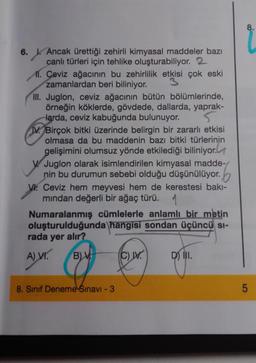 8.
6. I. Ancak ürettiği zehirli kimyasal maddeler bazı
canlı türleri için tehlike oluşturabiliyor. 2
II. Ceviz ağacının bu zehirlilik etkisi çok eski
zamanlardan beri biliniyor. 3
III. Juglon, ceviz ağacının bütün bölümlerinde,
örneğin köklerde, gövdede, dallarda, yaprak-
larda, ceviz kabuğunda bulunuyor. 5
IV. Birçok bitki üzerinde belirgin bir zararlı etkisi
olmasa da bu maddenin bazı bitki türlerinin
gelişimini olumsuz yönde etkilediği biliniyor. 4
V. Juglon olarak isimlendirilen kimyasal madde-
nin bu durumun sebebi olduğu düşünülüyor. 6
VI. Ceviz hem meyvesi hem de kerestesi bakı-
mından değerli bir ağaç türü. 1
Numaralanmış cümlelerle anlamlı bir metin
oluşturulduğunda hangisi sondan üçüncü sı-
rada yer alır?
A) VI. B) V. C) IV. D) III.
8. Sınıf Deneme Sınavı - 3
5